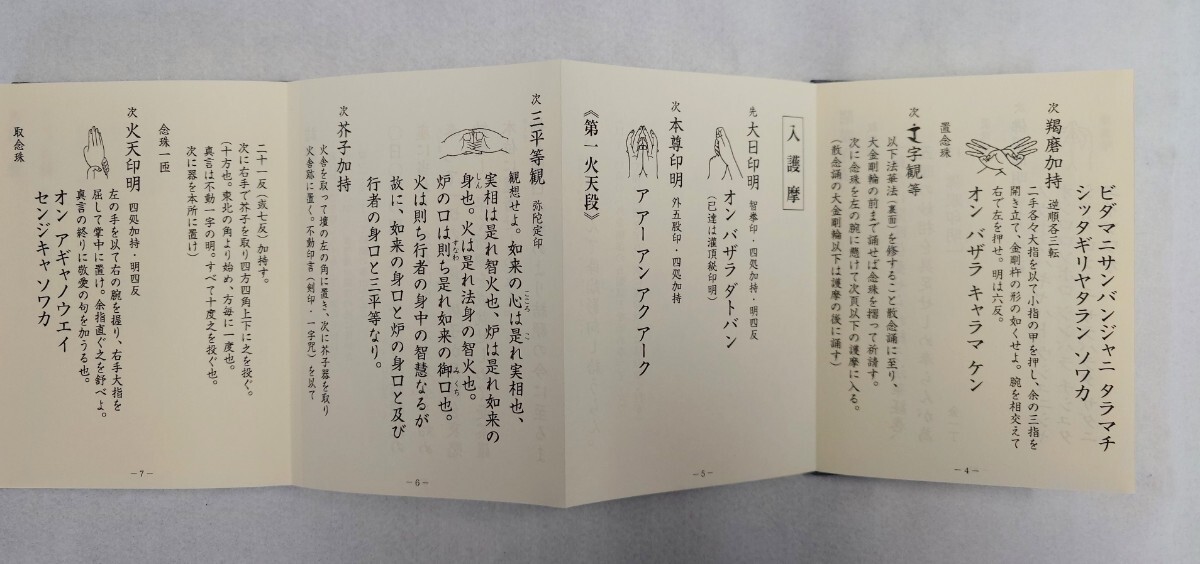 ビダマニサンバンジャニ タラマチ
シッタギリヤタラン ソワカ
次 羯磨加持 逆順各三転
二手各々大指を以て小指の甲を押し、余の三指を
開き立て、金剛杵の形の如くせよ。腕を相交えて
右で左を押せ。明は六反。
オン バザラ キャラマ ケン
置念珠
次 字観等
以下法華法(裏面)を修すること散念誦に至り、
大金剛輪の前まで誦せば念珠を摺って祈請す。
次に念珠を左の腕に懸けて次頁以下の護摩に入る。
(散念誦の大金剛輪以下は護摩の後に誦す)
-4-
入護摩
先 大日印明 智拳印・四処加持・明四反
オン バザラ ダトバン
(已達は灌頂秘印明)
次 本尊印明 外五股印・四処加持
アアーアンアクアーク
《第一火天段》
-5-
次 三平等観 弥陀定印
観想せよ。如来の心は是れ実相也、
こころ こ
実相は是れ智火也、炉は是れ如来の
身也。火は是れ法身の智火也。
しん
炉の口は則ち是れ如来の御口也。
すなわ みくち
火は則ち行者の身中の智慧なるが
故に、如来の身口と炉の身口と及び
行者の身口と三平等なり。
次 芥子加持
火舎を取って壇の左の角に置き、次に芥子器を取り
火舎跡に置く。不動印言(剣印・一字咒)を以て
-6-
二十一反(或七反)加持す。
次に右手で芥子を取り四方四角上下に之を投ぐ。
(十方也。東北の角より始め、方毎に一度也。
真言は不動一字の明。すべて十度之を投ぐ也。
次に器を本所に置け)
念珠一匝
次 火天印明 四処加持・明四反
左の手を以て右の腕を握り、右手大指を
屈して掌中に置け。余指直ぐ之を舒べよ。
真言の終りに敬愛の句を加うる也。
オン アギャノウエイ
センジキャ ソワカ
取念珠
-7-